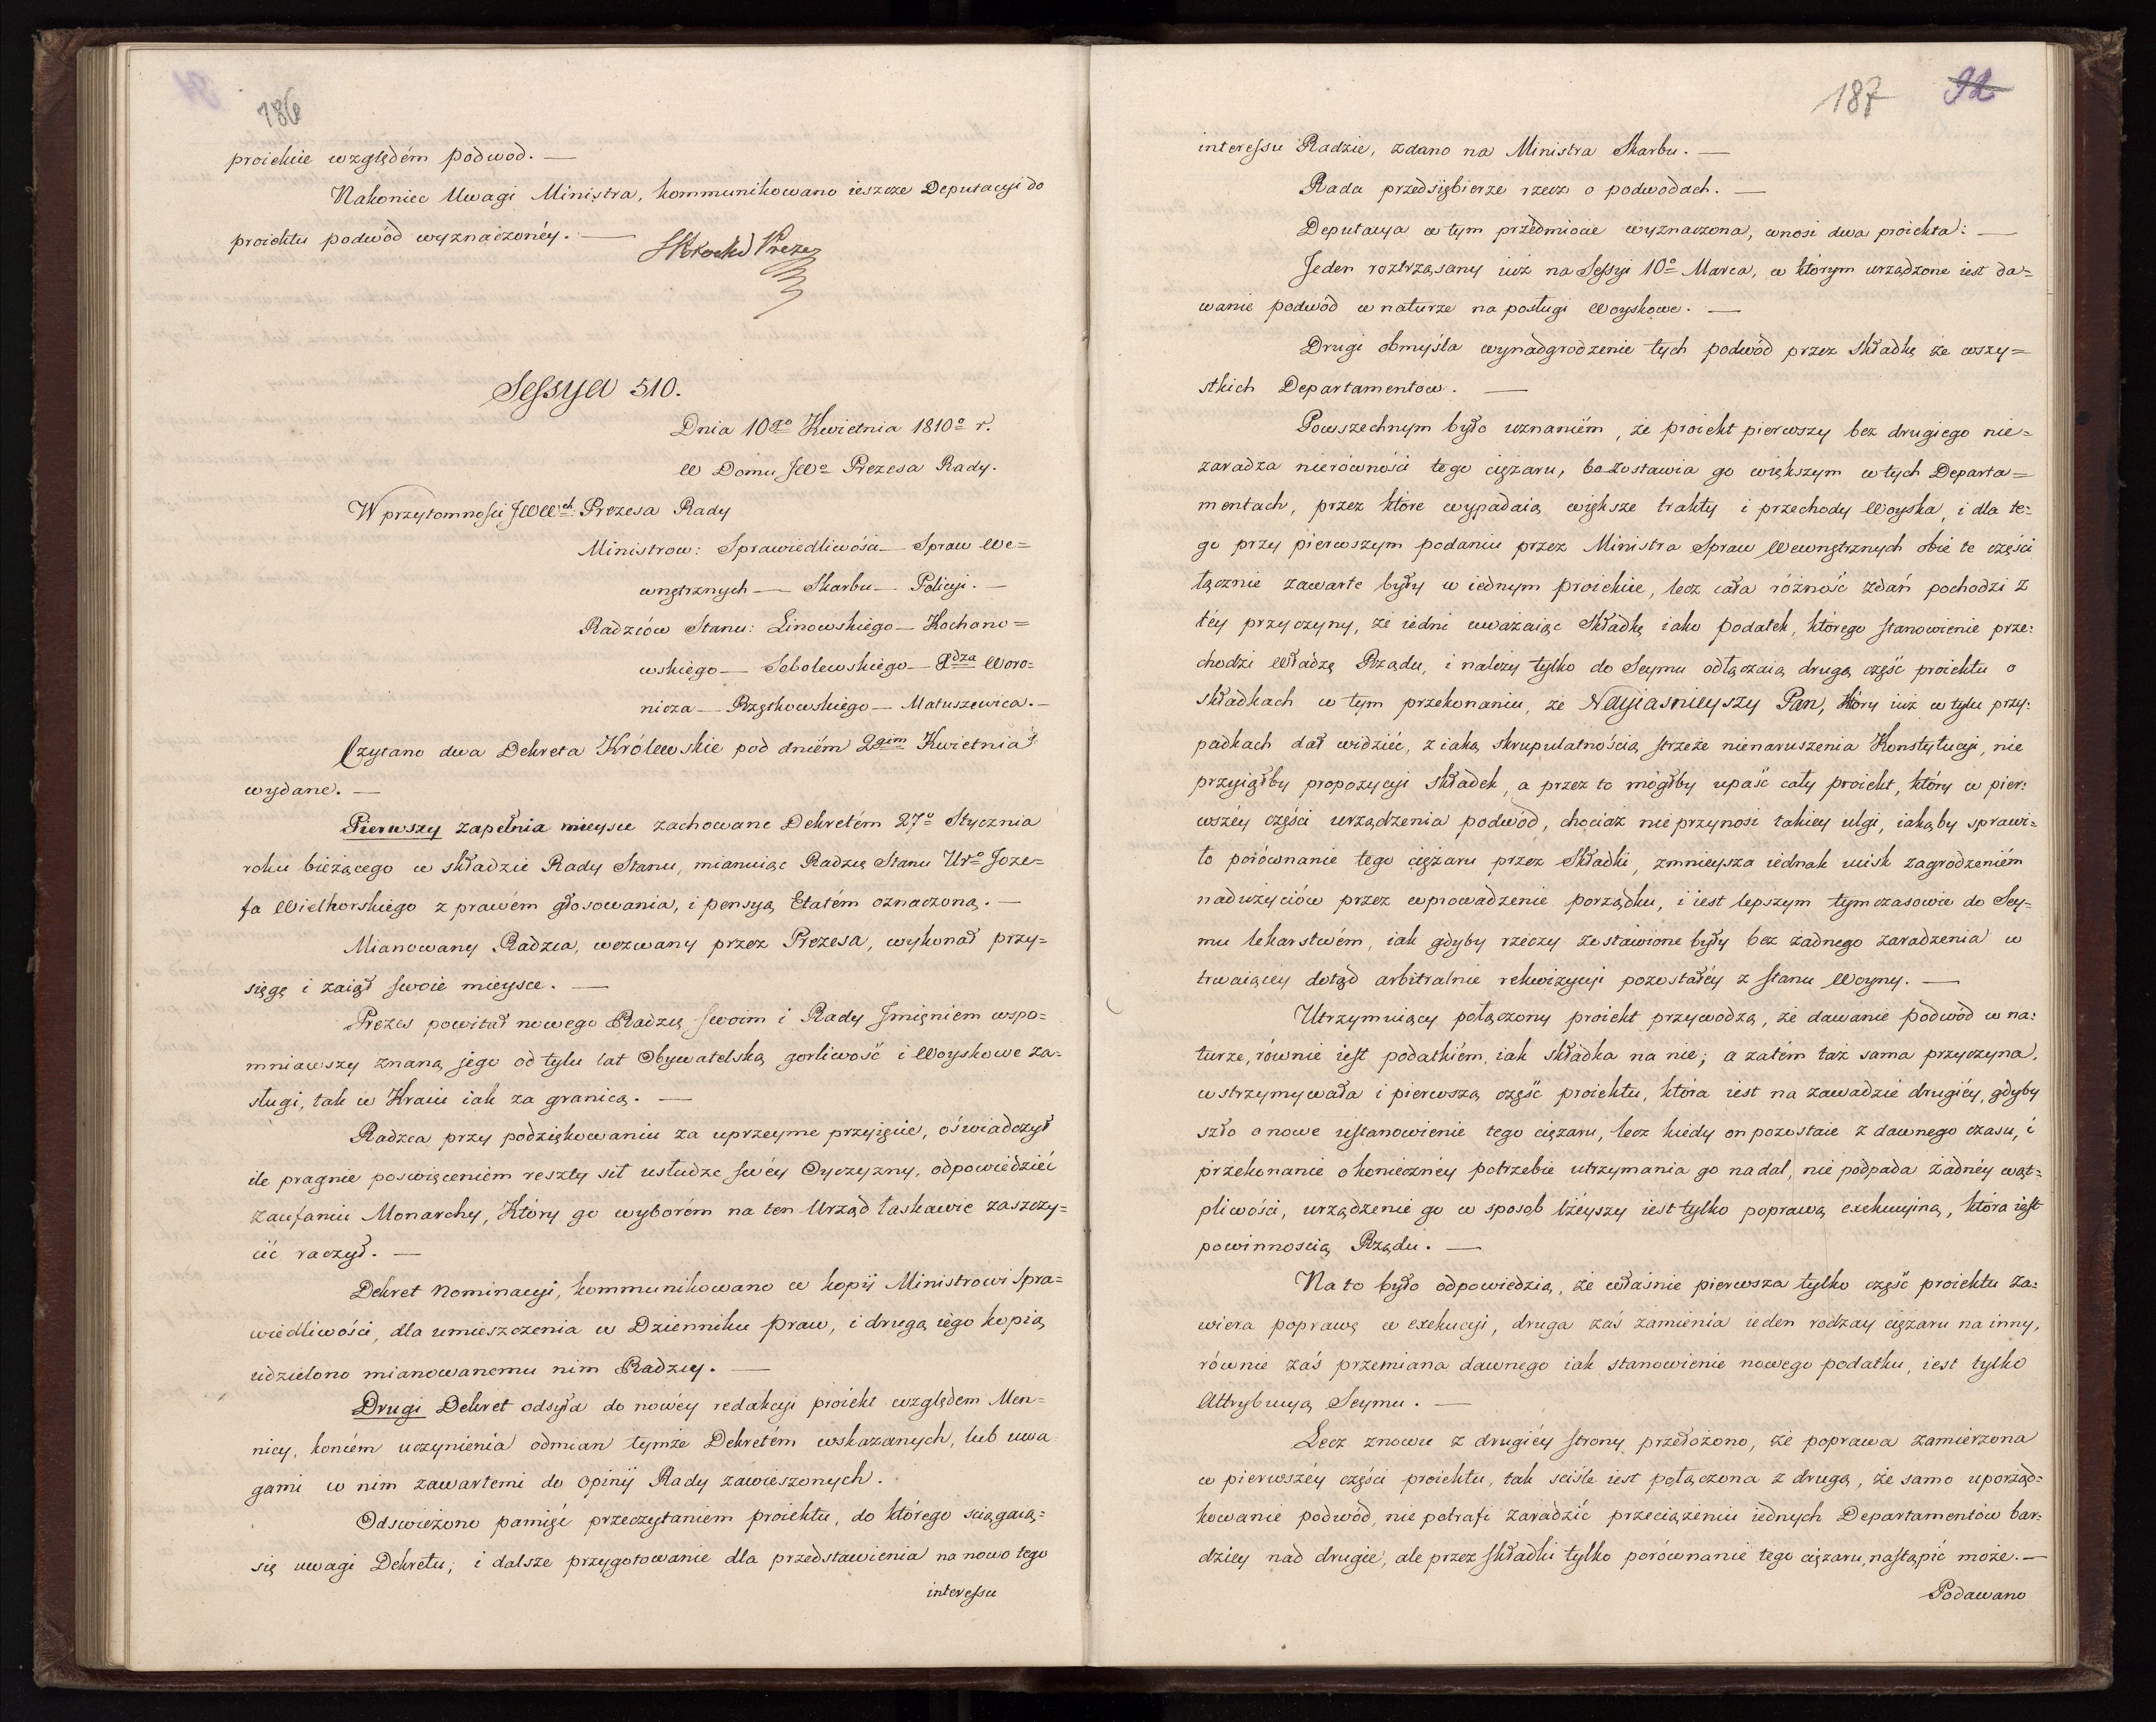 186
proiekcie względém podwod. —
Nakoniec Uwagi Ministra, kommunikowano ieszcze Deputacyi do
proiektu podwód wyznaczonéy. —
Sessya 510.
Dnia 10go Kwietnia 1810o r.
W Domu JWo Prezesa Rady.
W przytomności JWWch Prezesa Rady
Ministrow: Sprawiedliwości — Spraw We=
wnętrznych — Skarbu — Policyi. —
Radzców Stanu: Linowskiego — Kochano=
wskiégo — Sobolewskiego — Xdza Woro=
nicza — Rzętkowskiego — Matuszewica. —
Czytano dwa Dekreta Królewskie pod dniém 2gim Kwietnia
wydane. —
Pierwszy zapełnia mieysce zachowane Dekretém 27o Stycznia
roku bieżącego w składzie Rady Stanu, mianuiąc Radzcę Stanu Uro Joze=
fa Wielhorskiego z prawém głosowania, i pensyą Etatém oznaczoną. —
Mianowany Radzca, wezwany przez Prezesa, wykonał przy=
sięgę i zaiął swoie mieysce. —
Prezes powitał nowego Radzcę swoim i Rady Jmięniem wspo=
mniawszy znaną jego od tylu lat Obywatelską gorliwość i Woyskowe za=
sługi, tak w Kraiu iak za granicą. —
Radzca przy podziękowaniu za uprzeyme przyięcie, oświadczył
ile pragnie poswięceniém reszty sił usłudze swéy Oyczyzny, odpowiedziéć
zaufaniu Monarchy, Który go wyborém na ten Urząd łaskawie zaszczy=
cić raczył. —
Dekret Nominacyi, kommunikowano w kopij Ministrowi Spra=
wiedliwości, dla umieszczenia w Dzienniku praw, i drugą iégo kopią
udzielono mianowanemu nim Radzcy. —
Drugi Dekret odsyła do nowéy redakcyi proiekt względem Men=
nicy, końcém uczynienia odmian tymże Dekretém wskazanych, lub uwa=
gami w nim zawartemi do Opinij Rady zawieszonych.
Odswieżono pamięć przeczytaniem proiektu, do którego sciągaią=
się uwagi Dekretu; i dalsze przygotowanie dla przedstawienia na nowo tego
interessu
187 92
interessu Radzie, zdano na Ministra Skarbu. —
Rada przedsiębierze rzecz o podwodach. —
Deputacya w tym przedmiocie wyznaczona, wnosi dwa proiekta: —
Jeden roztrząsany iuż na Sessyi 10o Marca, w którym urządzone iest da=
wanie podwód w naturze na posługi Woyskowe. —
Drugi obmyśla wynadgrodzenie tych podwód przez Składkę ze wszy=
stkich Departamentow. —
Powszechnym było uznaniém, że proiekt pierwszy bez drugiego nie=
zaradza nierówności tego ciężaru, bo zostawia go większym w tych Departa=
mentach, przez które wypadaią większe trakty i przechody Woyska, i dla te=
go przy pierwszym podaniu przez Ministra Spraw Wewnętrznych obie te części
łącznie zawarte były w iednym proiekcie, lecz cała różność zdań pochodzi z
téy przyczyny, że iedni uważaiąc Składkę iako podatek, którego stanowienie prze=
chodzi Władzę Rządu, i należy tylko do Seymu odłączaią drugą część proiektu o
składkach w tym przekonaniu, że Nayiasnieyszy Pan, który iuż w tylu przy=
padkach dał widzieć, z iaką skrupulatnością strzeże nienaruszenia Konstytucyi, nie
przyiąłby propozycyi składek, a przez to mógłby upaść cały proiekt, który w pier=
wszéy części urządzenia podwód, chociaż nie przynosi takiey ulgi, iakąby sprawi=
ło porównanie tego ciężaru przez Składki, zmnieysza iednak ucisk zagrodzeniém
nadużyciów przez wprowadzenie porządku, i iest lepszym tymczasowie do Sey=
mu lekarstwém, iak gdyby rzeczy zostawione były bez żadnego zaradzenia w
trwaiącéy dotąd arbitralnie rekwizycyi pozostałéy z stanu Woyny. —
Utrzymuiący połączony proiekt przywodzą, że dawanie podwód w na=
turze, równie iest podatkiém, iak składka na nie; a zatém taż sama przyczyna,
wstrzymywała i pierwszą część proiektu, która iest na zawadzie drugiéy, gdyby
szło o nowe ustanowienie tego ciężaru, lecz kiedy on pozostaie z dawnego czasu, i
przekonanie o koniecznéy potrzebie utrzymania go nadal, nie podpada żadnéy wąt=
pliwości, urządzenie go w sposób lżéyszy iest tylko poprawą exekucyiną, która iest
powinnoscią Rządu. —
Na to było odpowiedzią, że właśnie pierwsza tylko część proiektu za=
wiera poprawę w exekucyi, druga zaś zamienia ieden rodzay ciężaru na inny,
równie zaś przemiana dawnego iak stanowienie nowego podatku, iest tylko
Attrybucyą Seymu. —
Lecz znowu z drugiéy strony przełożono, że poprawa zamierzona
w pierwszéy części proiektu, tak sciśle iest połączona z drugą, że samo uporząd=
kowanie podwód, nie potrafi zaradzić przeciążeniu iednych Departamentów bar=
dziéy nad drugie, ale przez składki tylko porównanie tego ciężaru, nastąpić może. —
Podawano